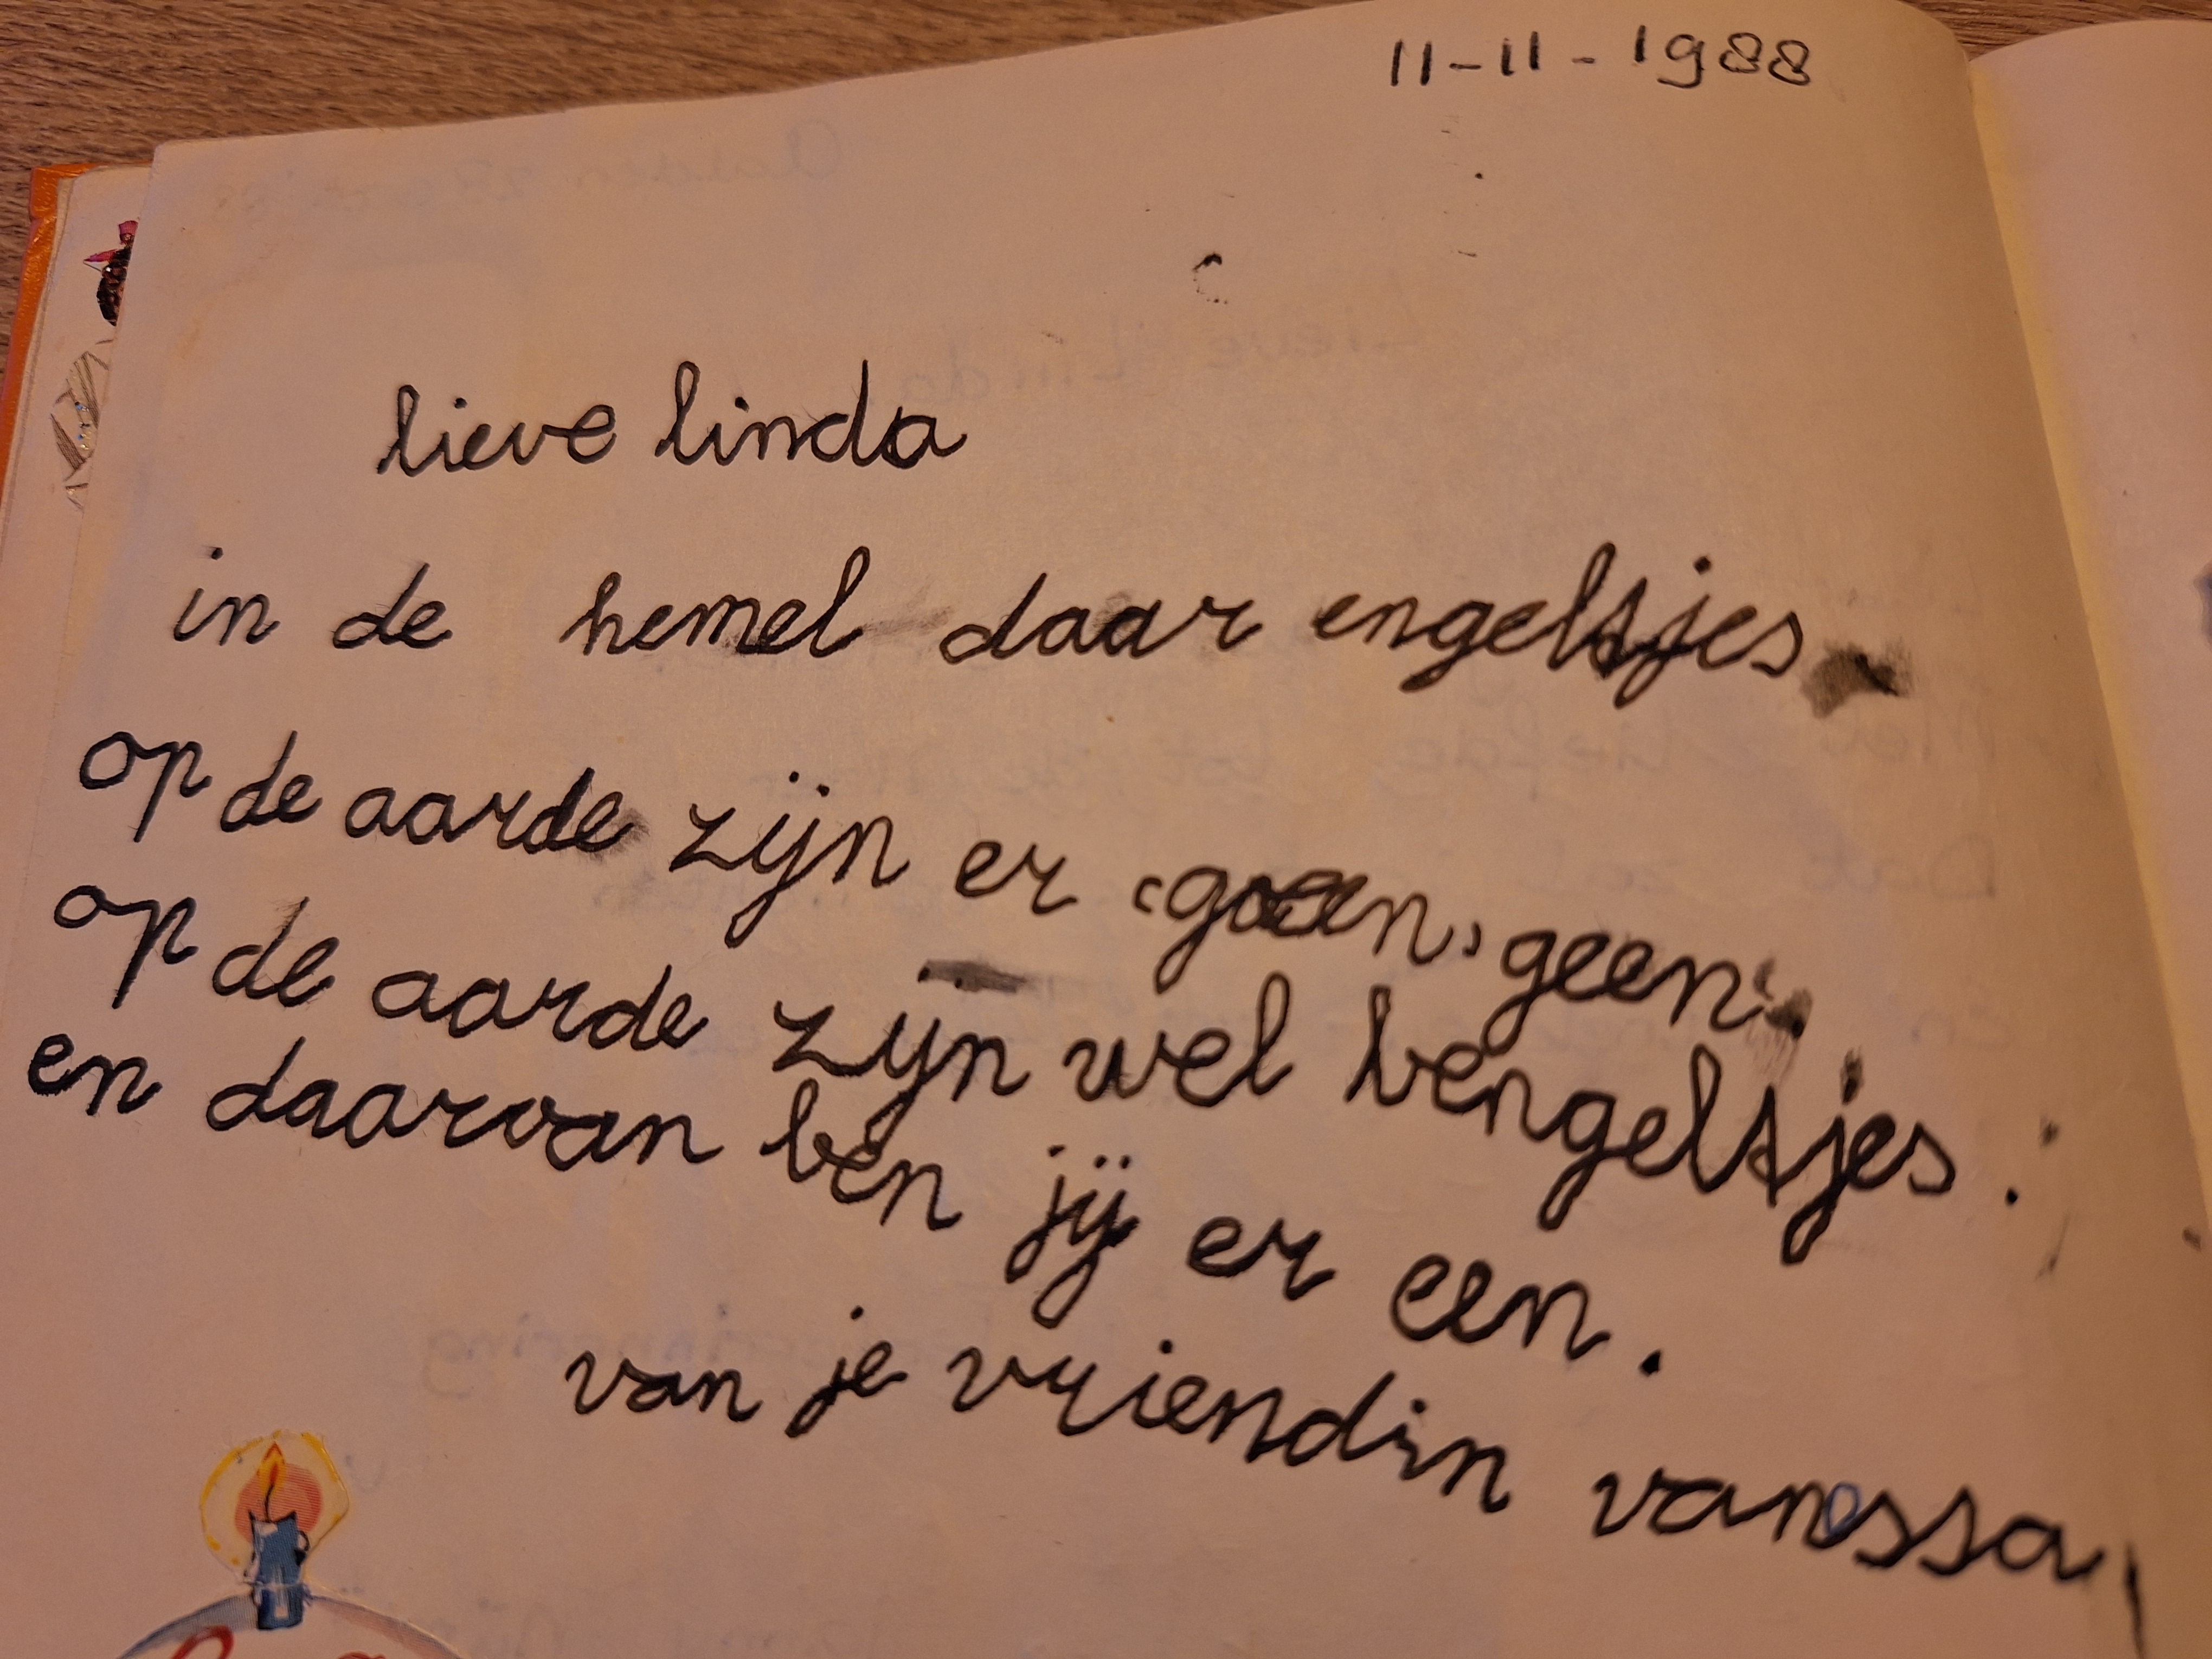 11-11-1988
lieve linda
in de hemel daar engeltsjes
op de aarde zijn er (goan) geen.
op de aarde zijn wel bengeltsjes.
en daarvan ben jij er een.
van je vriendin vanessa